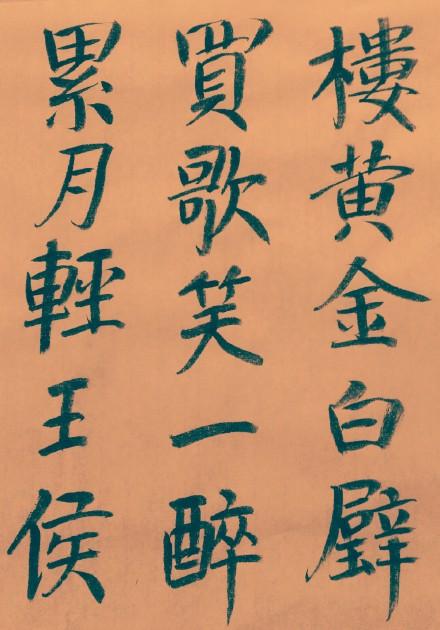 樓黄金白璧
買歌笑一醉
累月輕王侯